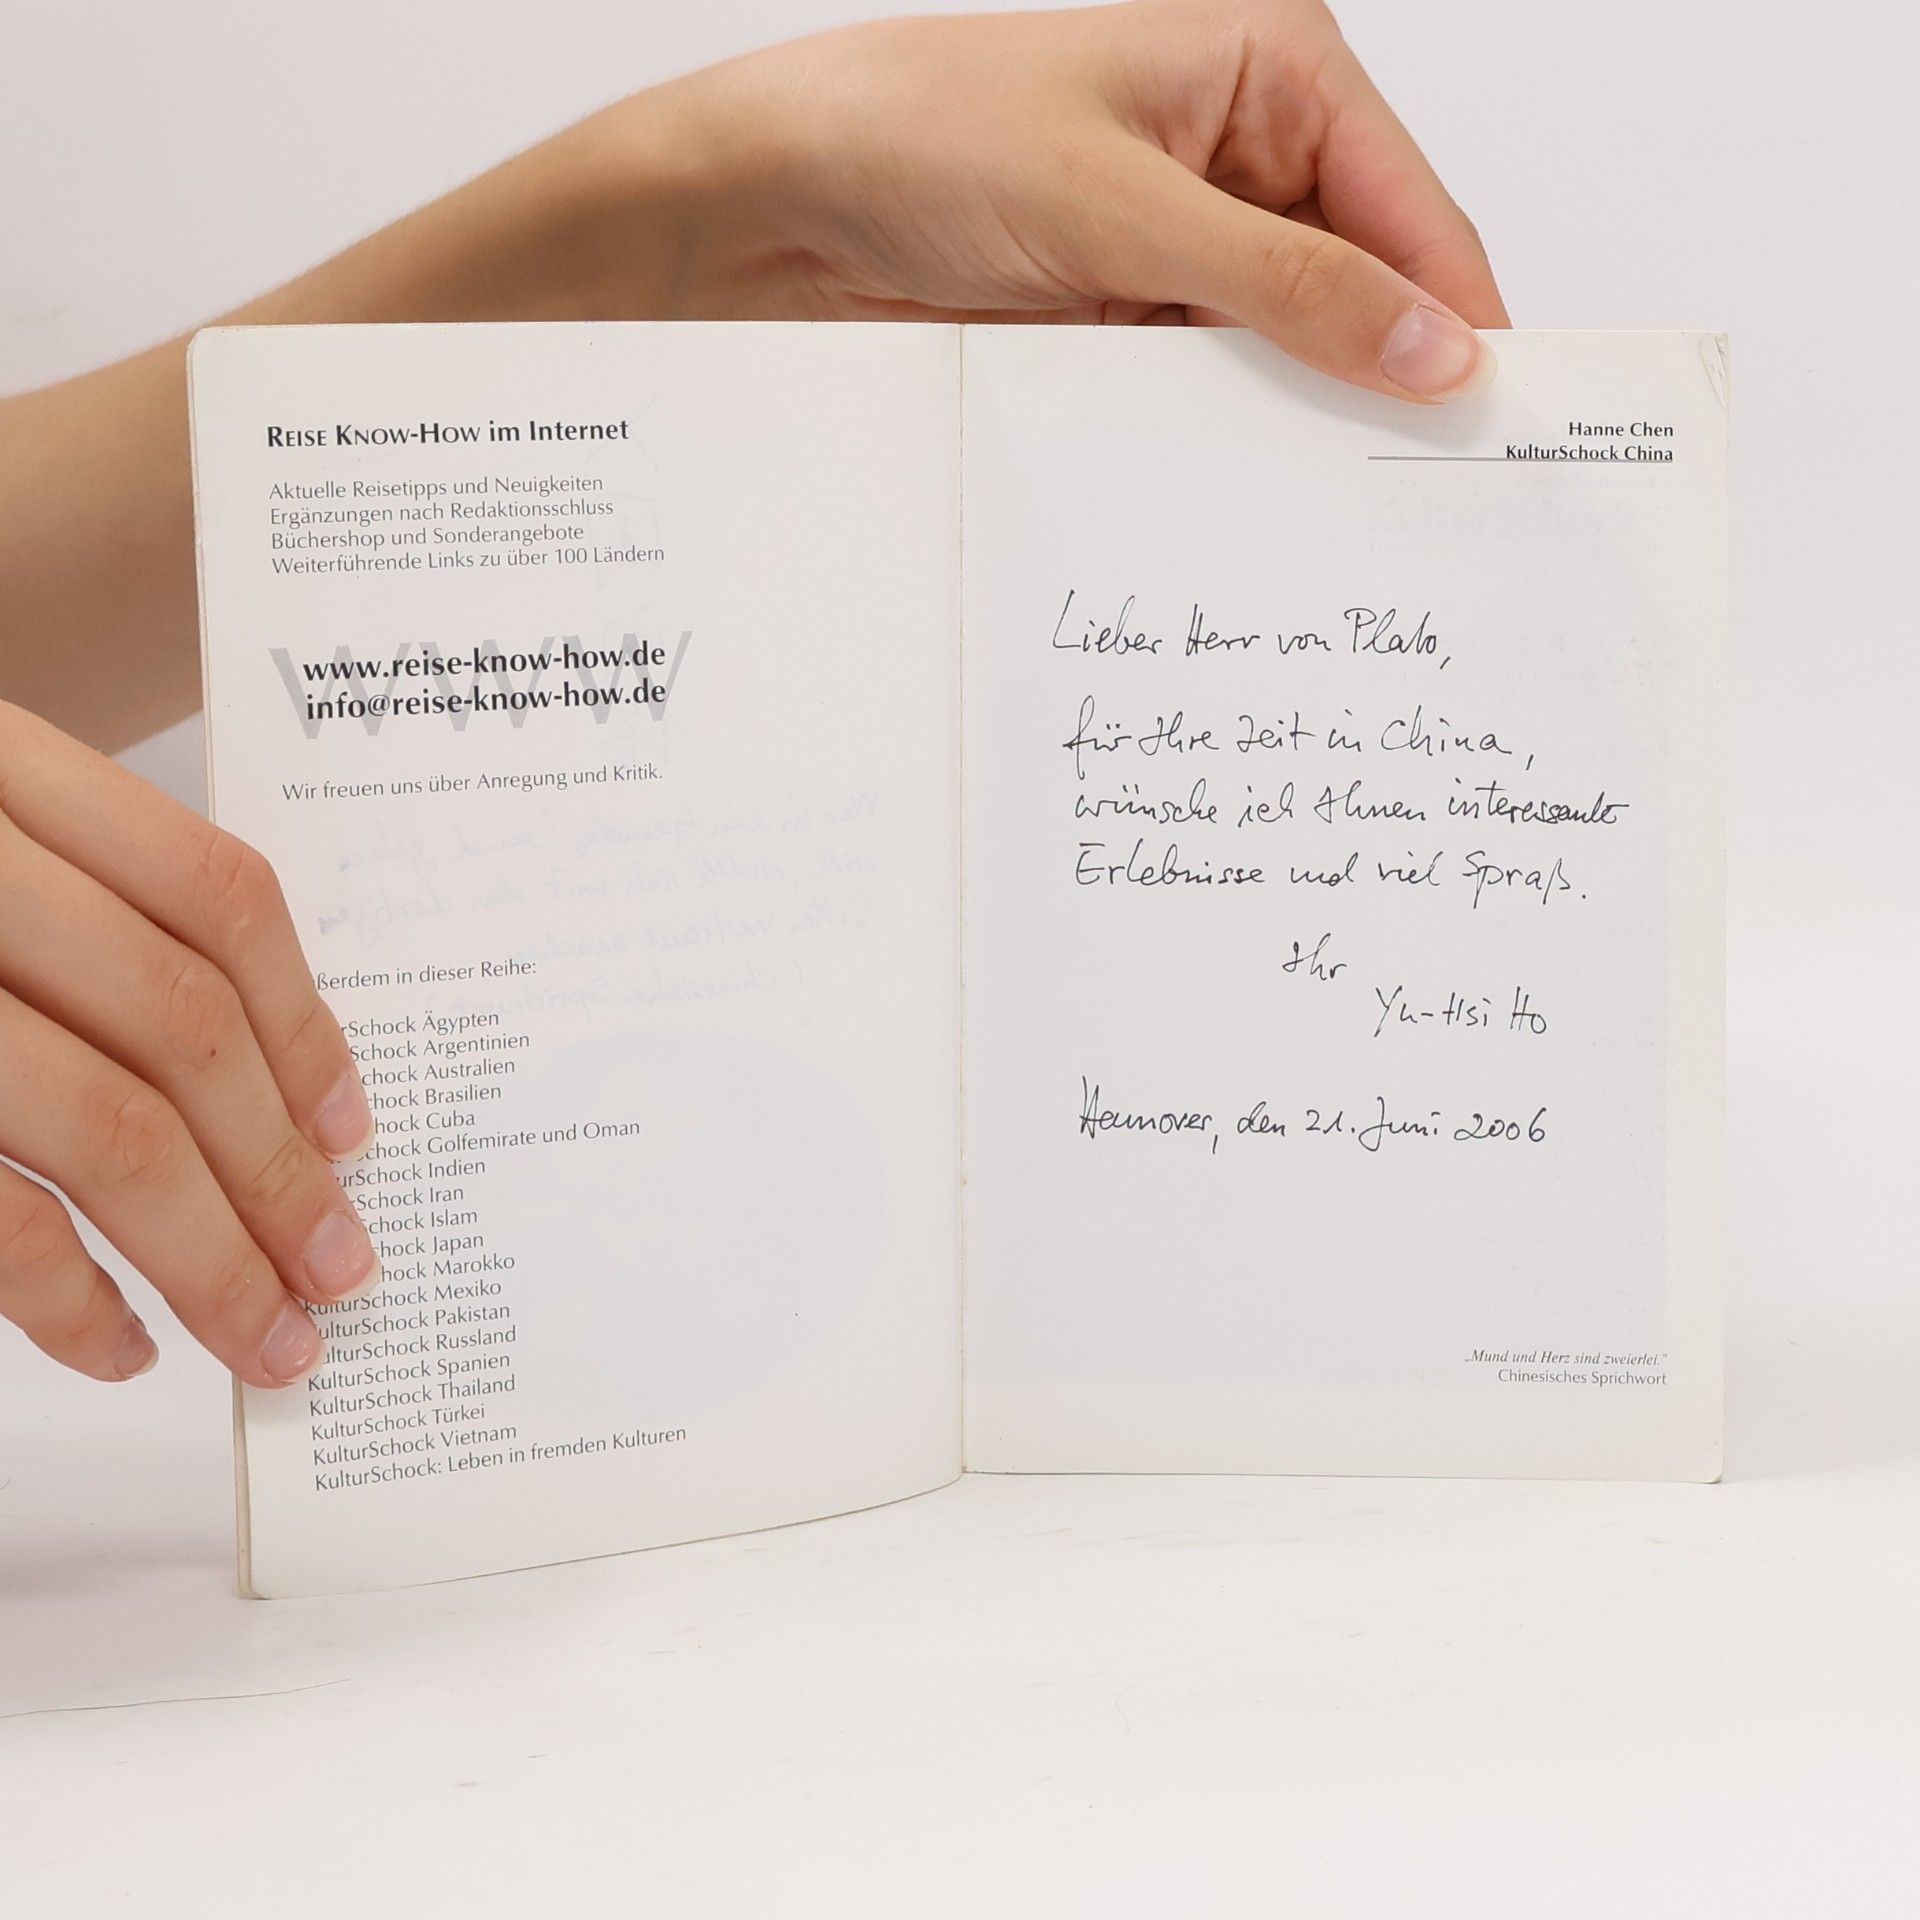 REISE KNOW-HOW im Internet
Aktuelle Reisetipps und Neuigkeiten
Ergänzungen nach Redaktionsschluss
Büchershop und Sonderangebote
Weiterführende Links zu über 100 Ländern
WWW
www.reise-know-how.de
info@reise-know-how.de
Wir freuen uns über Anregung und Kritik.
ßerdem in dieser Reihe:
rSchock Ägypten
Schock Argentinien
chock Australien
hock Brasilien
hock Cuba
chock Golfemirate und Oman
urSchock Indien
rSchock Iran
chock Islam
hock Japan
hock Marokko
KulturSchock Mexiko
ulturSchock Pakistan
ulturSchock Russland
KulturSchock Spanien
KulturSchock Thailand
KulturSchock Türkei
KulturSchock Vietnam
KulturSchock: Leben in fremden Kulturen
Hanne Chen
KulturSchock China
Lieber Herr von Plato,
für Ihre Zeit in China,
wünsche ich Ihnen interessante
Erlebnisse und viel Spraß.
Ihr
Yu-Hsi Ho
Hannover, den 21. Juni 2006
„Mund und Herz sind zweierlei."
Chinesisches Sprichwort